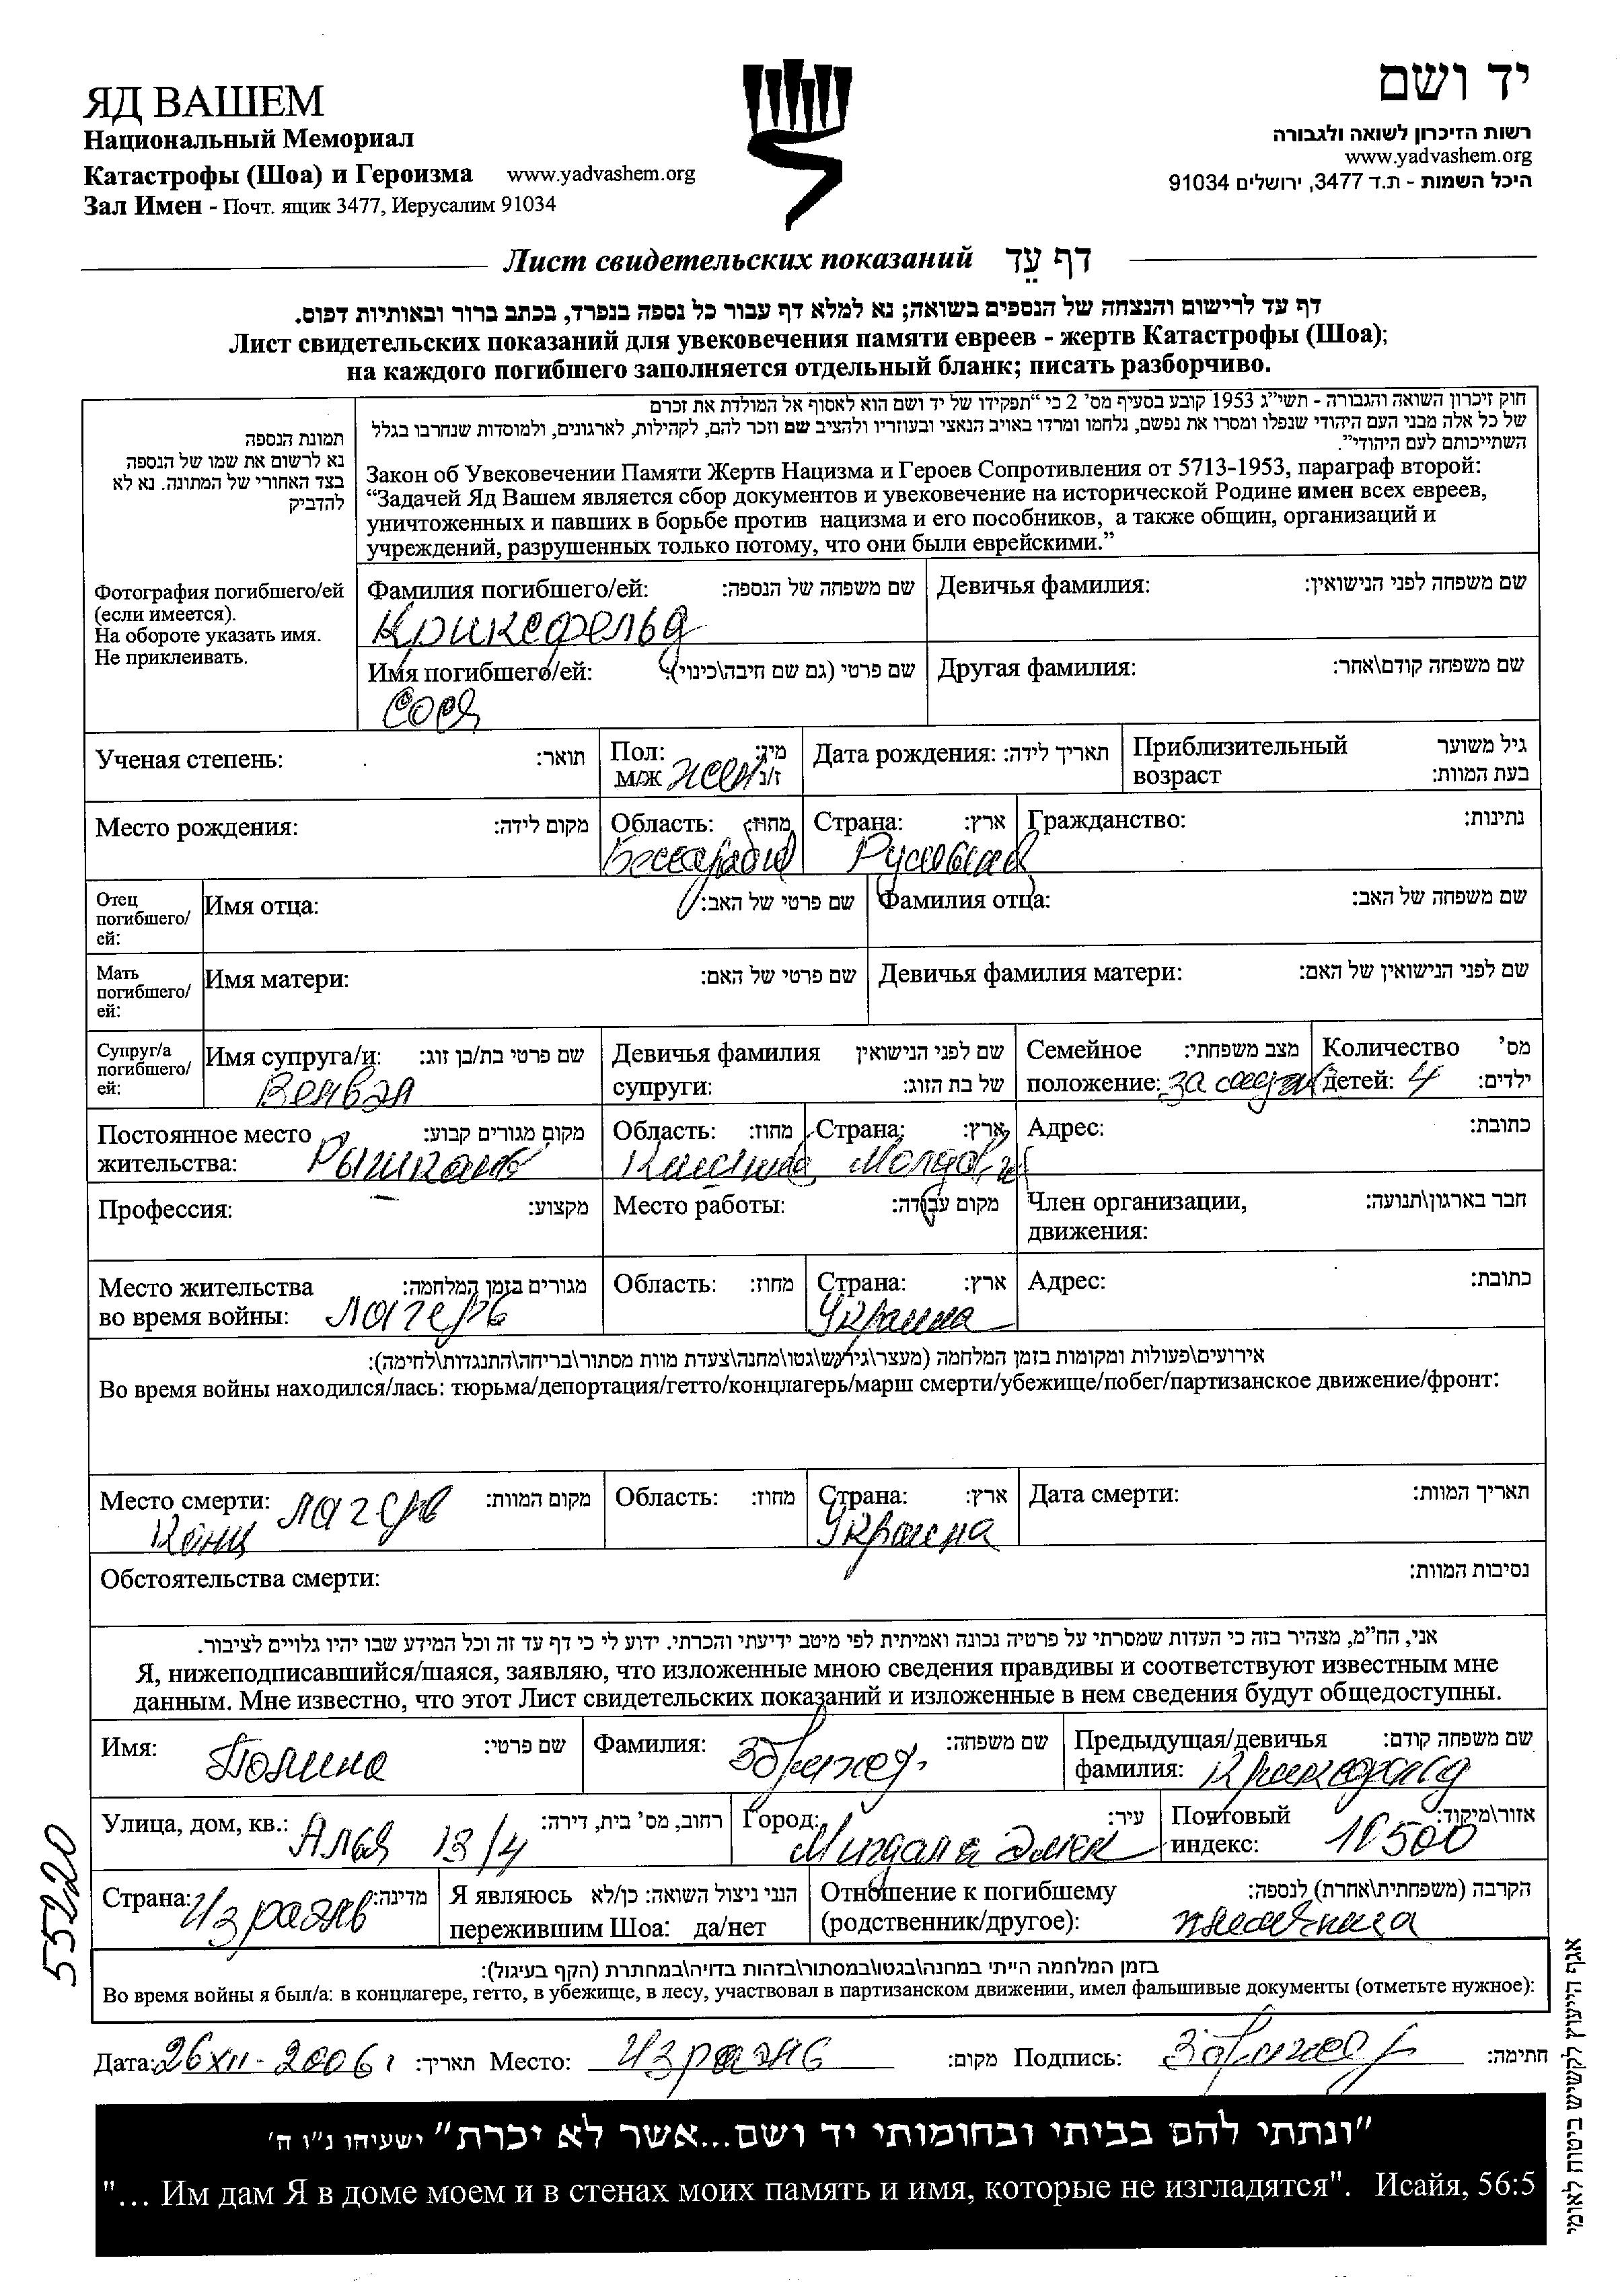 ЯД ВАШЕМ
Национальный Мемориал
Катастрофы (Шоа) и Героизма www.yadvashem.org
Зал Имен - Почт. ящик 3477, Иерусалим 91034
יד ושם
רשות הזיכרון לשואה ולגבורה
www.yadvashem.org
היכל השמות - ת.ד 3477, ירושלים 91034
Лист свидетельских показаний דף עֵד
דף עד לרישום והנצחה של הנספים בשואה; נא למלא דף עבור כל נספה בנפרד, בכתב ברור ובאותיות דפוס.
Лист свидетельских показаний для увековечения памяти евреев - жертв Катастрофы (Шоа);
на каждого погибшего заполняется отдельный бланк; писать разборчиво.
תמונת הנספה
נא לרשום את שמו של הנספה
בצד האחורי של המתונה. נא לא
להדביק
Фотография погибшего/ей
(если имеется).
На обороте указать имя.
Не приклеивать.
חוק זיכרון השואה והגבורה - תשי"ג 1953 קובע בסעיף מס' 2 כי "תפקידו של יד ושם הוא לאסוף אל המולדת את זכרם
של כל אלה מבני העם היהודי שנפלו ומסרו את נפשם, נלחמו ומרדו באויב הנאצי ובעוזריו ולהציב שם וזכר להם, לקהילות, לארגונים, ולמוסדות שנחרבו בגלל
השתייכותם לעם היהודי".
Закон об Увековечении Памяти Жертв Нацизма и Героев Сопротивления от 5713-1953, параграф второй:
“Задачей Яд Вашем является сбор документов и увековечение на исторической Родине имен всех евреев,
уничтоженных и павших в борьбе против нацизма и его пособников, а также общин, организаций и
учреждений, разрушенных только потому, что они были еврейскими.”
Фамилия погибшего/ей: שם משפחה של הנספה: Девичья фамилия: שם משפחה לפני הנישואין:
Криксфельд
Имя погибшего/ей: שם פרטי (גם שם חיבה\כינוי): Другая фамилия: שם משפחה קודם\אחר:
Сося
Ученая степень: תואר: Пол: מין: Дата рождения: תאריך לידה: Приблизительный גיל משוער
м/ж жен ז/נ возраст בעת המוות:
Место рождения: מקום לידה: Область: מחוז: Страна: ארץ: Гражданство: נתינות:
Бессарабия Румыния
Отец
погибшего/
ей:
Имя отца: שם פרטי של האב: Фамилия отца: שם משפחה של האב:
Мать
погибшего/
ей:
Имя матери: שם פרטי של האם: Девичья фамилия матери: שם לפני הנישואין של האם:
Супруг/а
погибшего/
ей:
Имя супруга/и: שם פרטי בת/בן זוג: Девичья фамилия שם לפני הנישואין Семейное מצב משפחתי: Количество מס'
Велвэл супруги: של בת הזוג: положение: детей: 4 ילדים:
Постоянное место מקום מגורים קבוע: Область: מחוז: Страна: ארץ: Адрес: כתובת:
жительства: Рышканы Молдавия
Профессия: מקצוע: Место работы: מקום עבודה: Член организации, חבר בארגון\תנועה:
движения:
Место жительства מגורים בזמן המלחמה: Область: מחוז: Страна: ארץ: Адрес: כתובת:
во время войны: лагерь Украина
אירועים\פעולות ומקומות בזמן המלחמה (מעצר\גירוש\גטו\מחנה\צעדת מוות מסתור\בריחה\התנגדות\לחימה):
Во время войны находился/лась: тюрьма/депортация/гетто/концлагерь/марш смерти/убежище/побег/партизанское движение/фронт:
Место смерти: лагерь מקום המוות: Область: מחוז: Страна: ארץ: Дата смерти: תאריך המוות:
Конц Украина
Обстоятельства смерти: נסיבות המוות:
אני, הח"מ, מצהיר בזה כי העדות שמסרתי על פרטיה נכונה ואמיתית לפי מיטב ידיעתי והכרתי. ידוע לי כי דף עד זה וכל המידע שבו יהיו גלויים לציבור.
Я, нижеподписавшийся/шаяся, заявляю, что изложенные мною сведения правдивы и соответствуют известным мне
данным. Мне известно, что этот Лист свидетельских показаний и изложенные в нем сведения будут общедоступны.
Имя: Полина שם פרטי: Фамилия: שם משפחה: Предыдущая/девичья שם משפחה קודם:
фамилия: Криксфельд
Улица, дом, кв.: Алия 13/4 רחוב, מס' בית, דירה: Город: עיר: Почтовый אזור\מיקוד:
Мигдаль а Эмек индекс: 10500
Страна: Израиль מדינה: Я являюсь הנני ניצול השואה: כן/לא Отношение к погибшему הקרבה (משפחתית\אחרת) לנספה:
пережившим Шоа: да/нет (родственник/другое): племянница
בזמן המלחמה הייתי במחנה\בגטו\במסתור\בזהות בדויה\במחתרת (הקף בעיגול):
Во время войны я был/а: в концлагере, гетто, в убежище, в лесу, участвовал в партизанском движении, имел фальшивые документы (отметьте нужное):
Дата: 26 XII - 2006 г תאריך: Место: Израиль מקום: Подпись: חתימה:
"ונתתי להם בביתי ובחומותי יד ושם...אשר לא יכרת" ישעיהו נ"ו ה'
"... Им дам Я в доме моем и в стенах моих память и имя, которые не изгладятся". Исайя, 56:5
55220
אגף הייעוץ לקשיש ביטוח לאומי